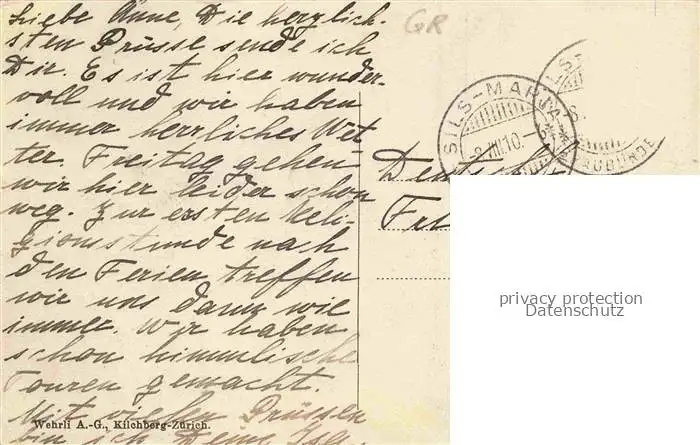 Liebe Änne, Die herzlich-
sten Grüsse sende ich
Dir. Es ist hier wunder-
voll und wir haben
immer herrliches Wet
ter. Freitag gehen
wir hier leider schon
weg. Zur ersten Reli-
gionsstunde nach
den Ferien treffen
wir uns dann wie
immer. Wir haben
schon himmlische
Touren gemacht.
Mit vielen Grüssen
bin ich Deine
Wehrli A.-G., Kilchberg-Zürich.
GR
SILS-MARIA
8.VIII.10.
privacy protection
Datenschutz